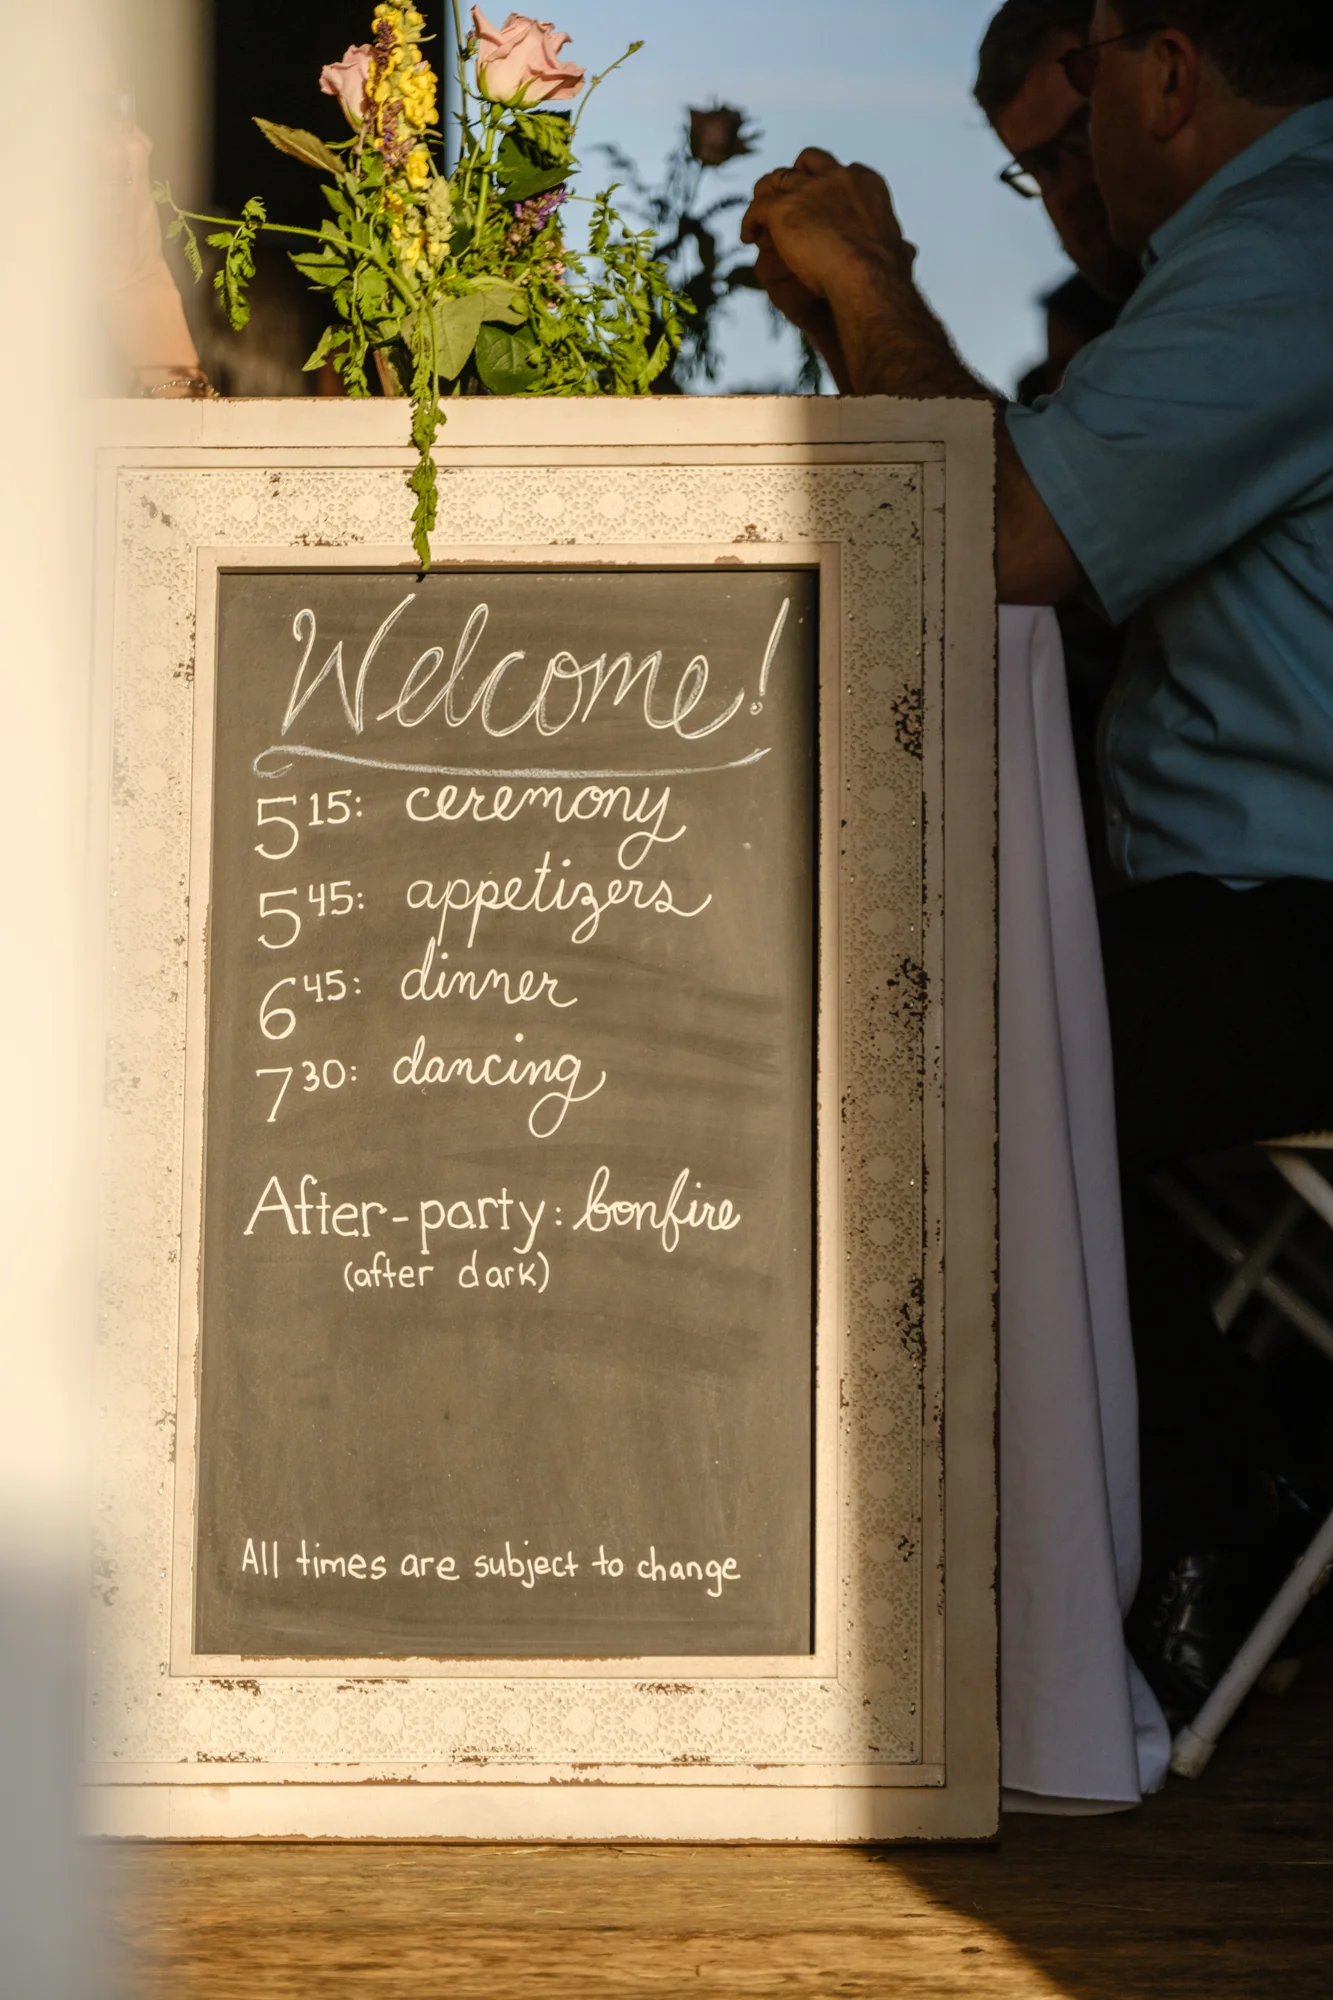 Welcome!
5 15: ceremony
5 45: appetizers
6 45: dinner
7 30: dancing
After-party: bonfire
(after dark)
All times are subject to change